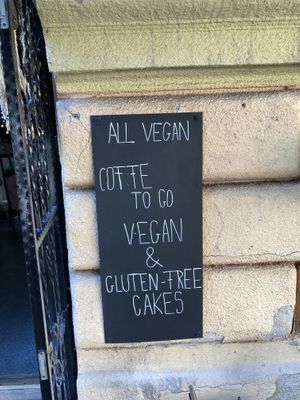 ALL VEGAN
COFFE
TO GO
VEGAN
&
GLUTEN-FREE
CAKES